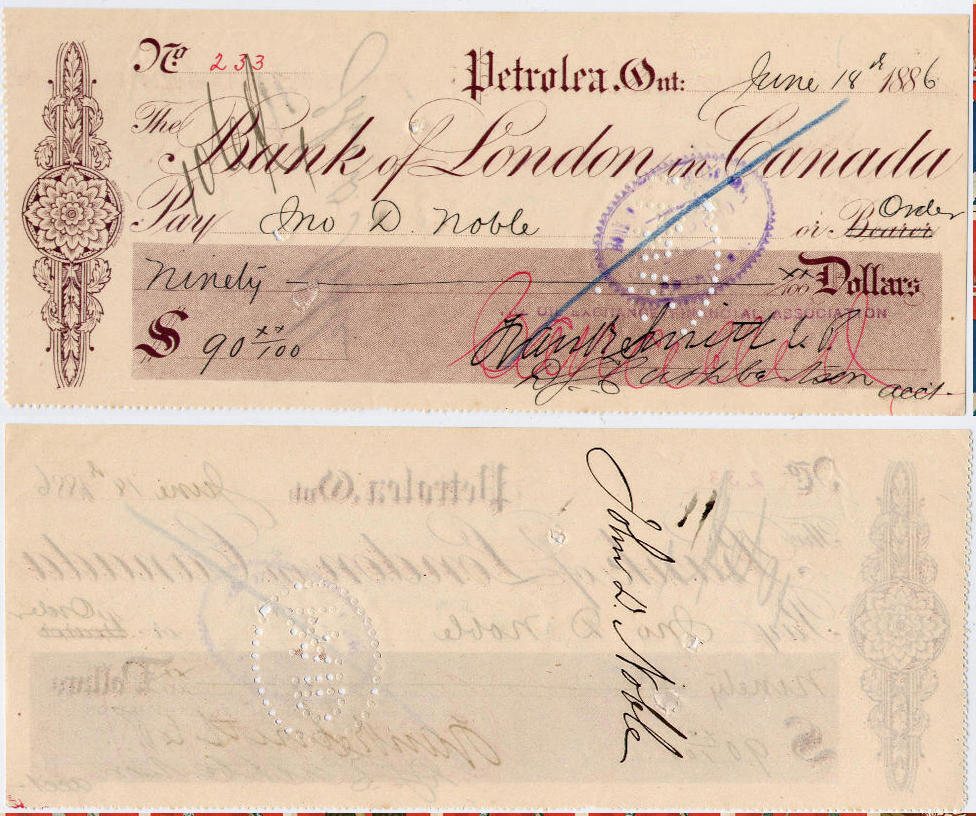 No 233
Petrolea. Ont: June 18th 1886
The
Bank of London in Canada
Pay Jno D. Noble or Bearer Order
Ninety xx/100 Dollars
$ 90 xx/100
EXCHANGE FINANCIAL ASSOCIATION
acct.
John D. Noble